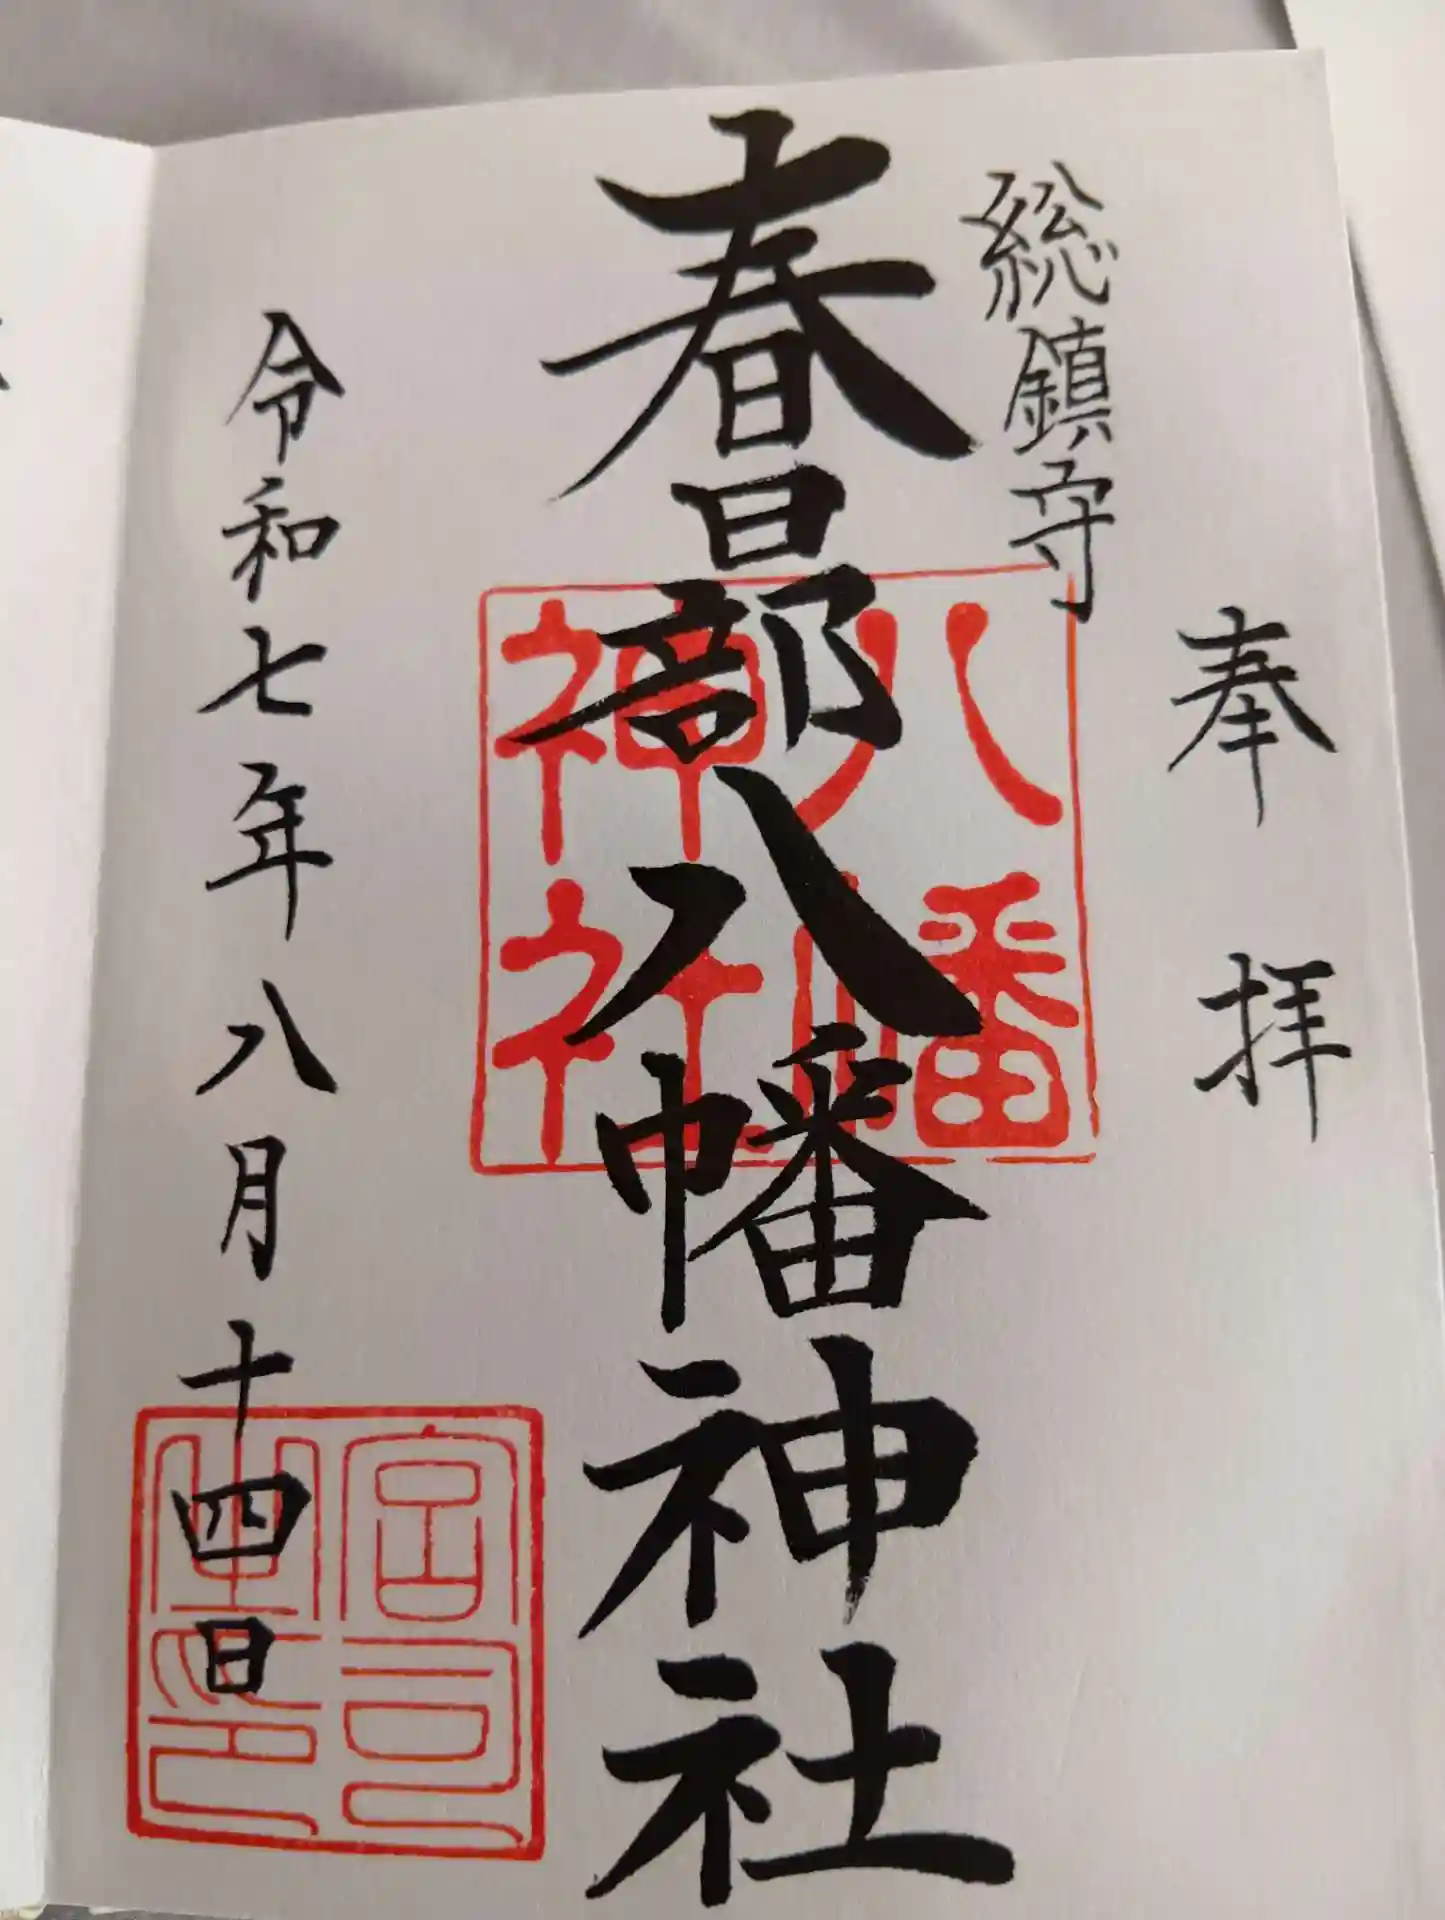 奉拝
総鎮守
春日部八幡神社
八幡
神社
令和七年八月十四日
宮司
之印